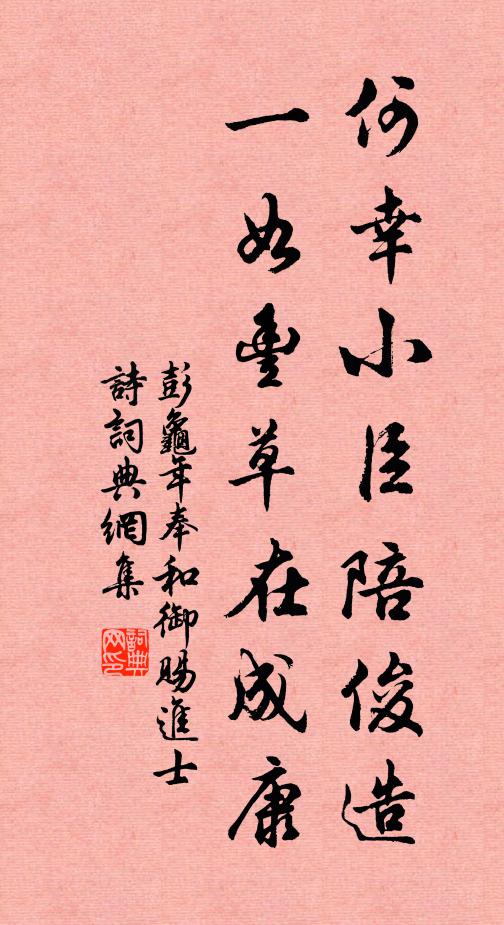 何幸小臣陪俊造
一如豐草在成康
彭龜年奉和御賜進士
詩詞典網集
詞典網印